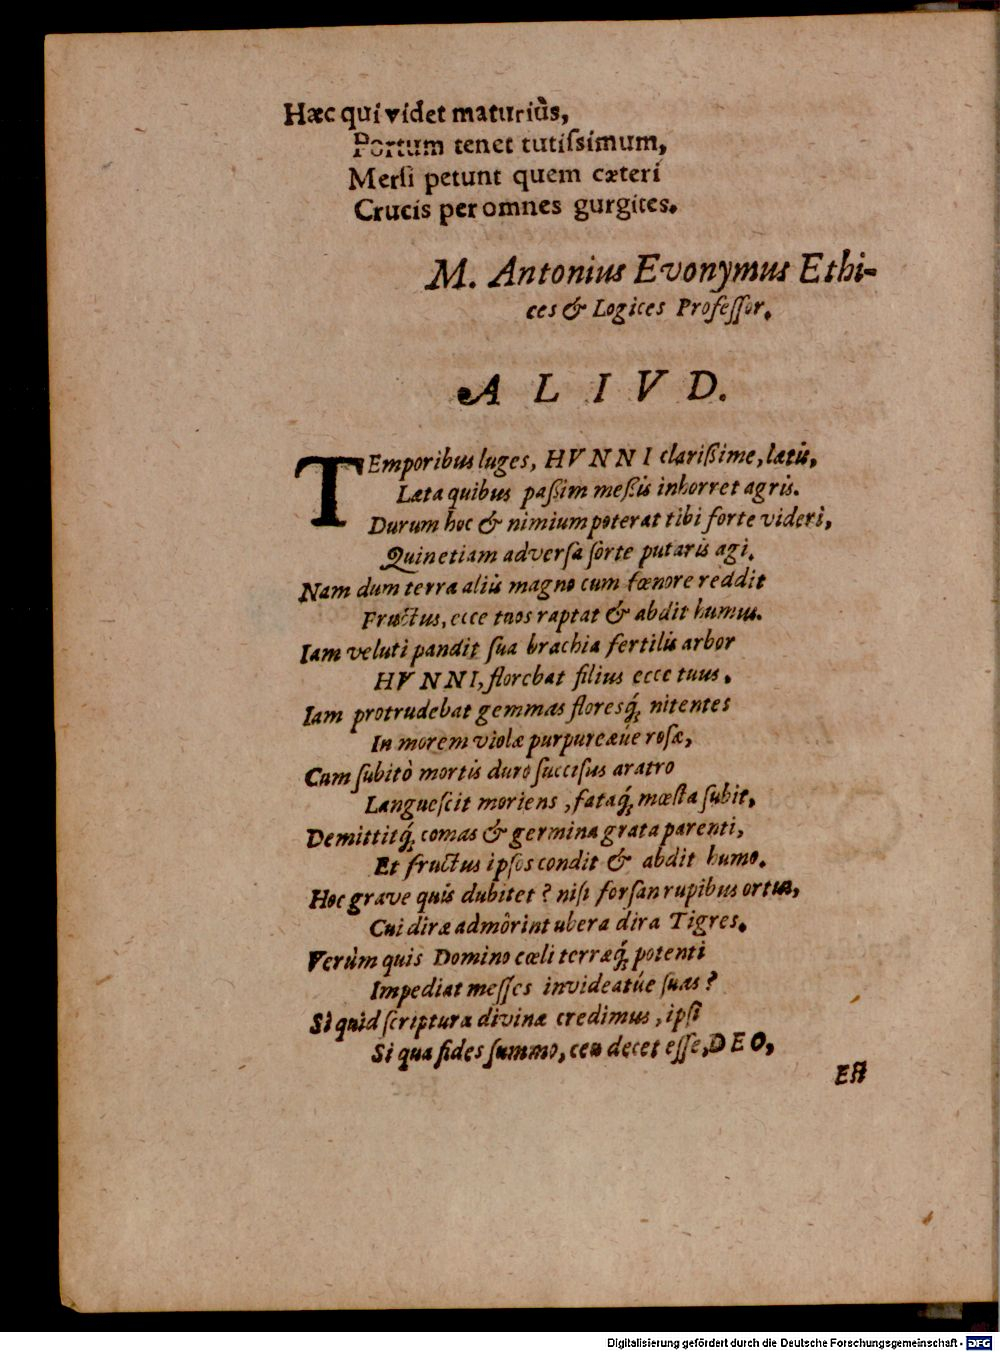 Hæc qui videt maturiùs,
Portum tenet tutiſsimum,
Merſi petunt quem cæteri
Crucis per omnes gurgites.
M. Antonius Evonymus Ethi-
ces & Logices Profeſſor.
ALIVD.
TEmporibus luges, HVNNI clarißime, lætis,
Læta quibus paßim meßis inhorret agris.
Durum hoc & nimium poterat tibi forte videri,
Quin etiam adverſa ſorte putaris agi.
Nam dum terra aliis magno cum fœnore reddit
Fructus, ecce tuos raptat & abdit humus.
Iam veluti pandit ſua brachia fertilis arbor
HVNNI, florebat filius ecce tuus.
Iam protrudebat gemmas floresq́; nitentes
In morem violæ purpureæúe roſæ,
Cum ſubitò mortis duro ſucciſus aratro
Langueſcit moriens, fataq́; mœſta ſubit,
Demittitq́; comas & germina grata parenti,
Et fructus ipſos condit & abdit humo.
Hoc grave quis dubitet? niſi forſan rupibus ortus,
Cui diræ admôrint ubera dira Tigres.
Verùm quis Domino cœli terræq́; potenti
Impediat meſſes invideatúe ſuas?
Si quid ſcripturæ divinæ credimus, ipſi
Si qua fides ſummo, ceu decet eſſe, DEO,
Eſt
Digitalisierung gefördert durch die Deutsche Forschungsgemeinschaft - DFG